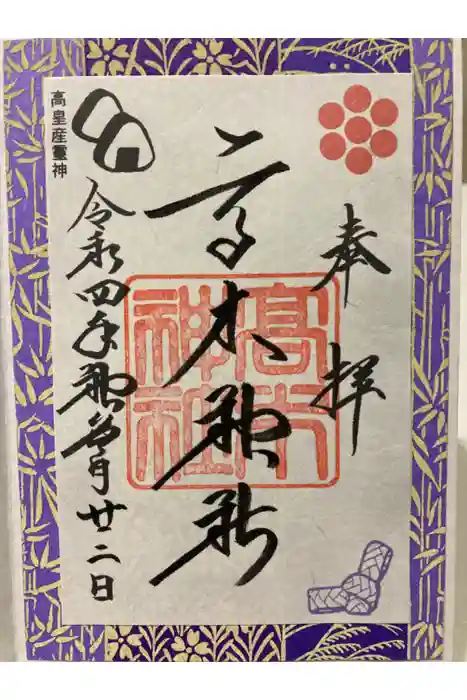 奉拝
高木神社
高木
神社
令和四年神無月廿二日
高皇産靈神